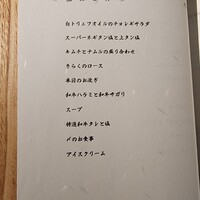 白トリュフオイルのチョレギサラダ
スーパーネギタン塩と上タン塩
キムチとナムルの盛り合わせ
きらくのロース
本日のお造り
和牛ハラミと和牛サガリ
スープ
特選和牛タレと塩
〆のお食事
アイスクリーム